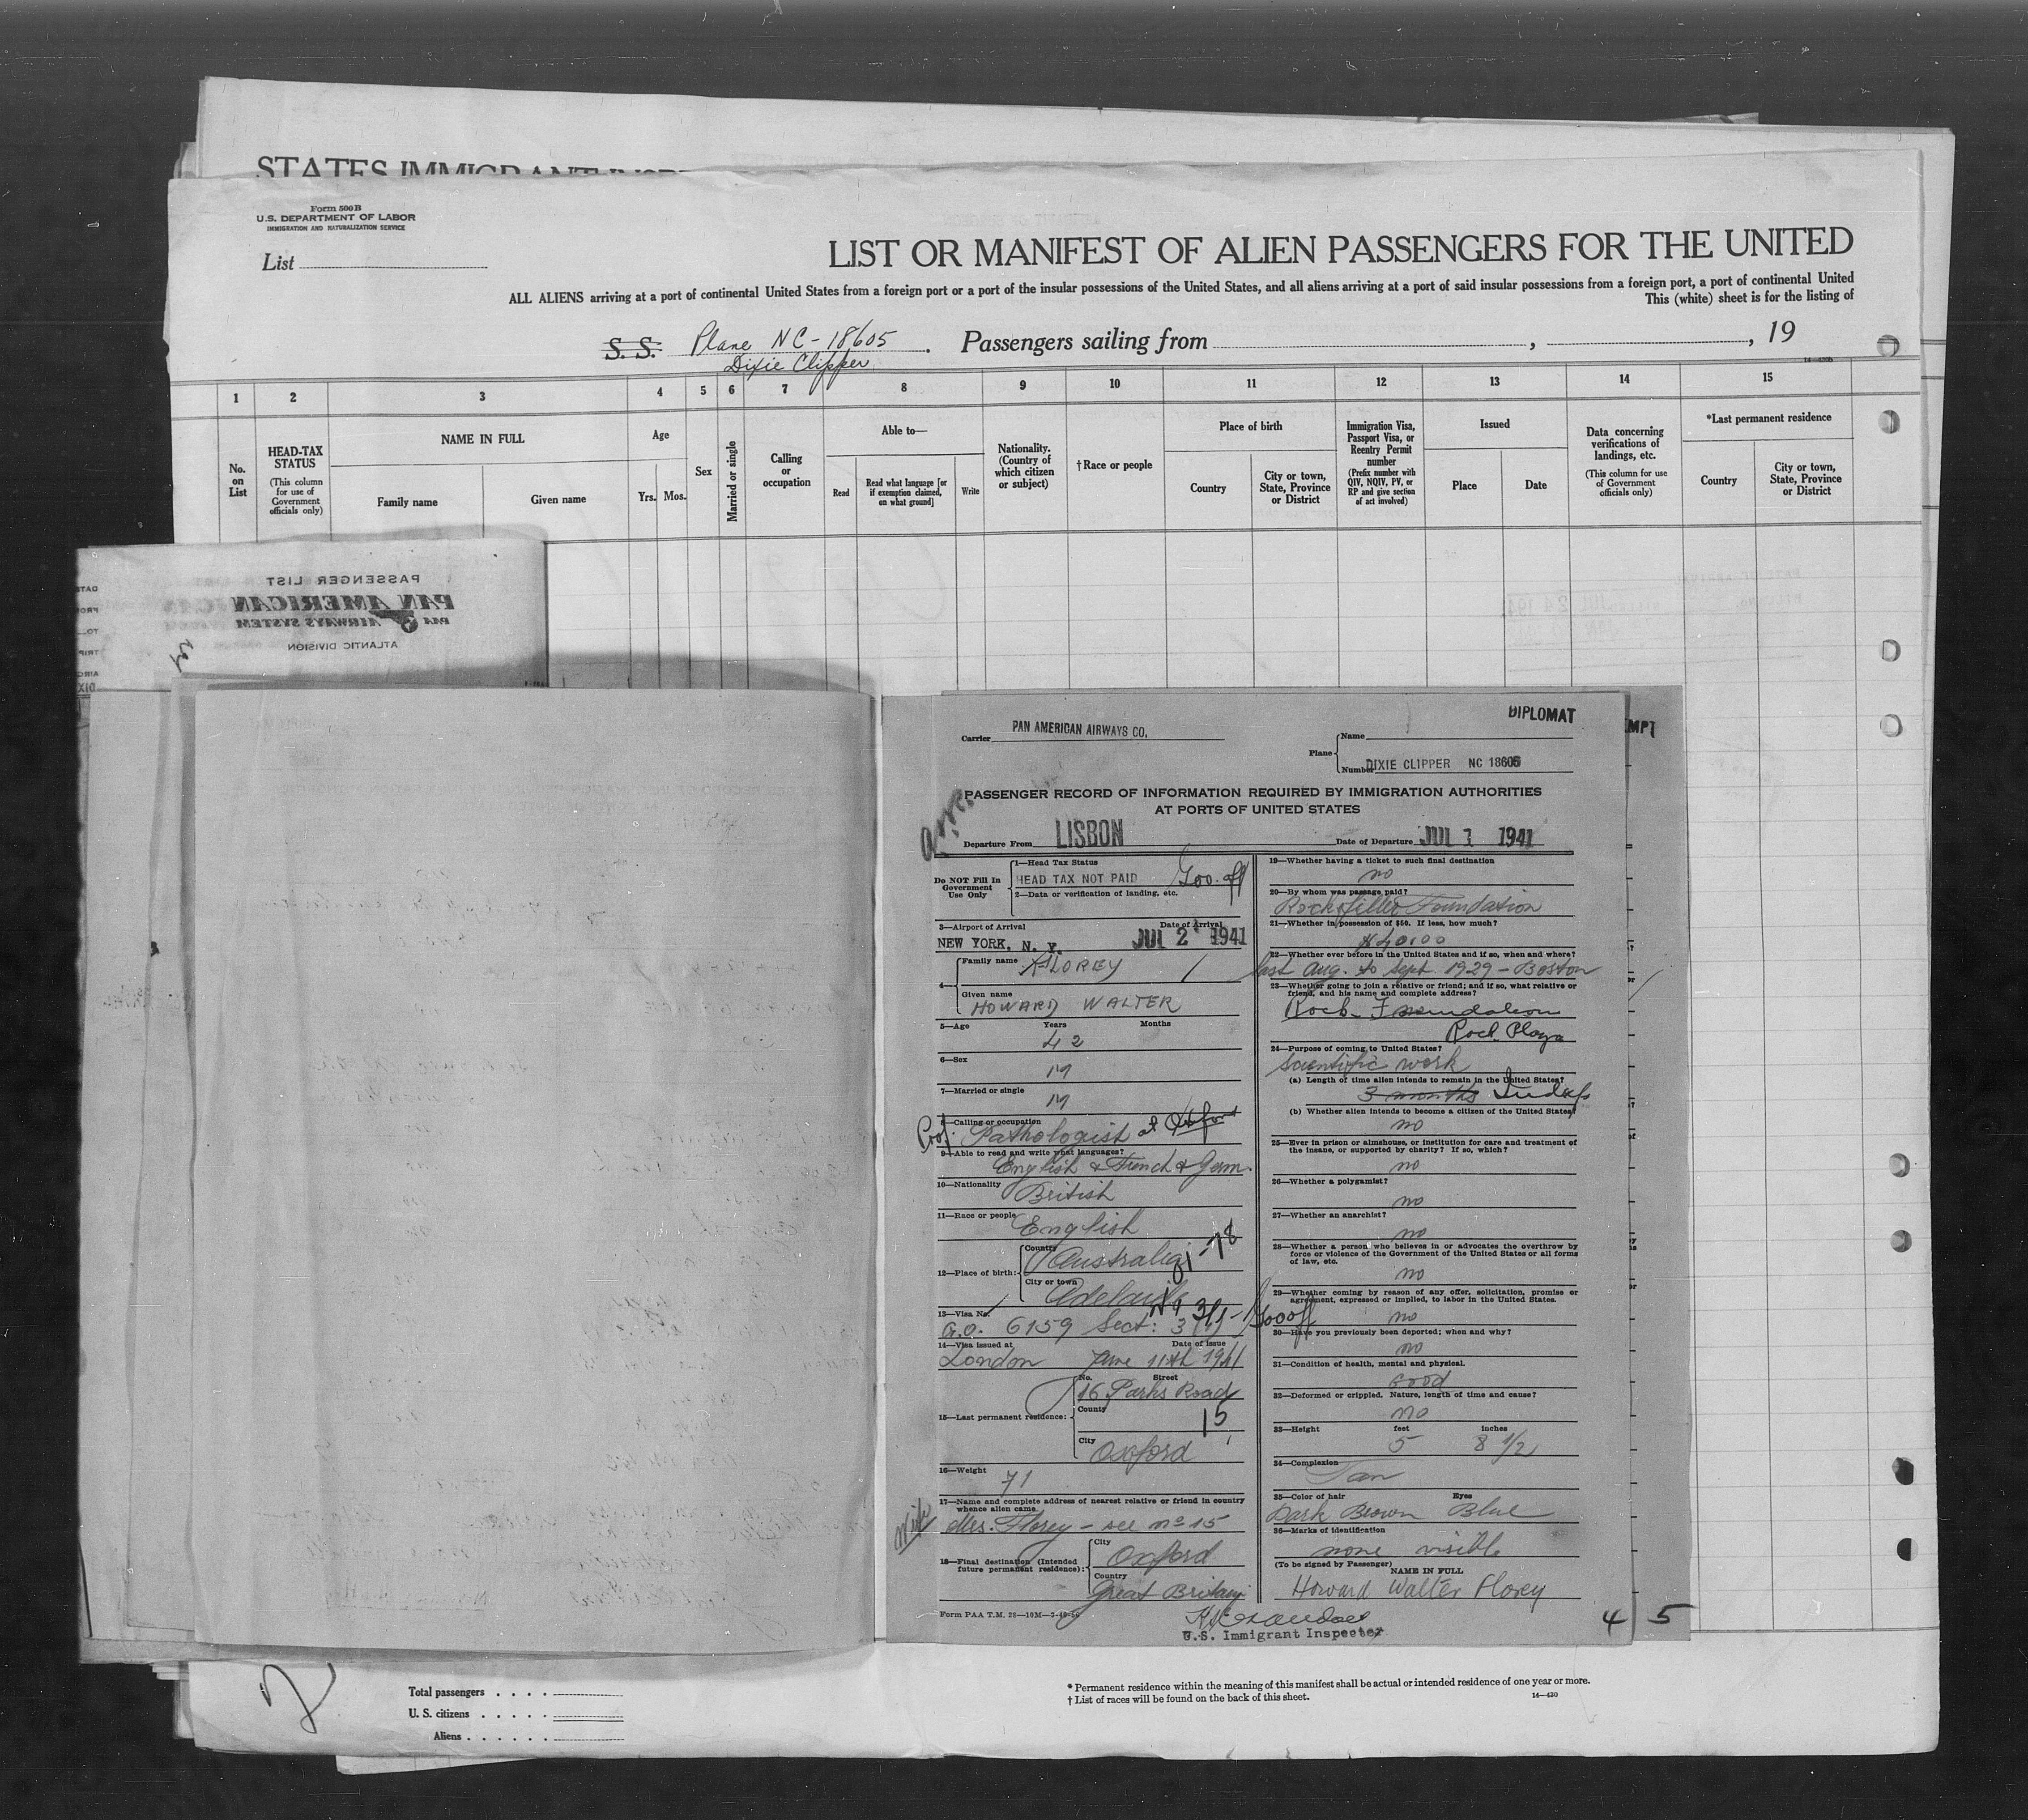 Form 500 B
U.S. DEPARTMENT OF LABOR
IMMIGRATION AND NATURALIZATION SERVICE
List
LIST OR MANIFEST OF ALIEN PASSENGERS FOR THE UNITED
ALL ALIENS arriving at a port of continental United States from a foreign port or a port of the insular possessions of the United States, and all aliens arriving at a port of said insular possessions from a foreign port, a port of continental United
This (white) sheet is for the listing of
S. S. Plane NC-18605 Passengers sailing from , , 19
Dixie Clipper
1 2 3 4 5 6 7 8 9 10 11 12 13 14 15
No. on List
HEAD-TAX STATUS
(This column for use of Government officials only)
NAME IN FULL
Family name
Given name
Age
Yrs. Mos.
Sex
Married or single
Calling or occupation
Able to—
Read
Read what language [or if exemption claimed, on what ground]
Write
Nationality. (Country of which citizen or subject)
† Race or people
Place of birth
Country
City or town, State, Province or District
Immigration Visa, Passport Visa, or Reentry Permit number
(Prefix number with QIV, NQIV, PV, or RP and give section of act involved)
Issued
Place
Date
Data concerning verifications of landings, etc.
(This column for use of Government officials only)
*Last permanent residence
Country
City or town, State, Province or District
PASSENGER LIST
PAN AMERICAN
PAA AIRWAYS SYSTEM
ATLANTIC DIVISION
DIPLOMAT
Carrier PAN AMERICAN AIRWAYS CO.
Plane
Name
Number DIXIE CLIPPER NC 18605
PASSENGER RECORD OF INFORMATION REQUIRED BY IMMIGRATION AUTHORITIES
AT PORTS OF UNITED STATES
Departure From LISBON
Date of Departure JUL 1 1941
Do NOT Fill In Government Use Only
1—Head Tax Status
HEAD TAX NOT PAID
2—Data or verification of landing, etc.
3—Airport of Arrival Date of Arrival
NEW YORK, N. Y. JUL 2 1941
4— Family name FLOREY
Given name
HOWARD WALTER
5—Age Years Months
42
6—Sex
M
7—Married or single
M
8—Calling or occupation
Prof. Pathologist at Oxford
9—Able to read and write what languages?
English & French & Germ.
10—Nationality
British
11—Race or people
English
12—Place of birth:
Country
Australia
City or town
Adelaide
13—Visa No.
G.O. 6159 Sect: 3
14—Visa issued at Date of issue
London June 11th 1941
15—Last permanent residence:
No. Street
16 Parks Road
County
15
City
Oxford
16—Weight
71
17—Name and complete address of nearest relative or friend in country whence alien came
Wife
Mrs. Florey – see no 15
18—Final destination (Intended future permanent residence):
City
Oxford
Country
Great Britain
Form PAA T.M. 28—10M—3-40
19—Whether having a ticket to such final destination
no
20—By whom was passage paid?
Rockefeller Foundation
21—Whether in possession of $50. If less, how much?
22—Whether ever before in the United States and if so, when and where?
last Aug. to Sept. 1929 – Boston
23—Whether going to join a relative or friend; and if so, what relative or friend, and his name and complete address?
Rock. Foundation
Rock. Plaza
24—Purpose of coming to United States?
scientific work
(a) Length of time alien intends to remain in the United States?
3 months Indef
(b) Whether alien intends to become a citizen of the United States?
no
25—Ever in prison or almshouse, or institution for care and treatment of the insane, or supported by charity? If so, which?
no
26—Whether a polygamist?
no
27—Whether an anarchist?
no
28—Whether a person who believes in or advocates the overthrow by force or violence of the Government of the United States or all forms of law, etc.
no
29—Whether coming by reason of any offer, solicitation, promise or agreement, expressed or implied, to labor in the United States.
no
30—Have you previously been deported; when and why?
no
31—Condition of health, mental and physical.
Good
32—Deformed or crippled. Nature, length of time and cause?
no
33—Height feet inches
5 8 1/2
34—Complexion
Tan
35—Color of hair Eyes
Dark Brown Blue
36—Marks of identification
none visible
(To be signed by Passenger)
NAME IN FULL
Howard Walter Florey
U.S. Immigrant Inspector
4 5
2
Total passengers
U. S. citizens
Aliens
* Permanent residence within the meaning of this manifest shall be actual or intended residence of one year or more.
† List of races will be found on the back of this sheet.
14—420